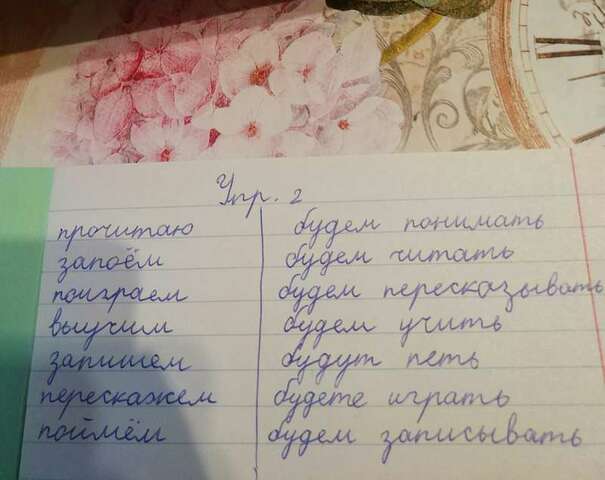 Упр. 2
прочитаю будем понимать
запоём будем читать
поиграем будем пересказывать
выучим будем учить
запишем будут петь
перескажем будете играть
поймём будем записывать